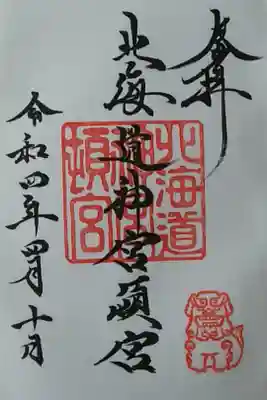 奉拝
北海道神宮頓宮
令和四年四月十日
北海道
神宮
頓宮